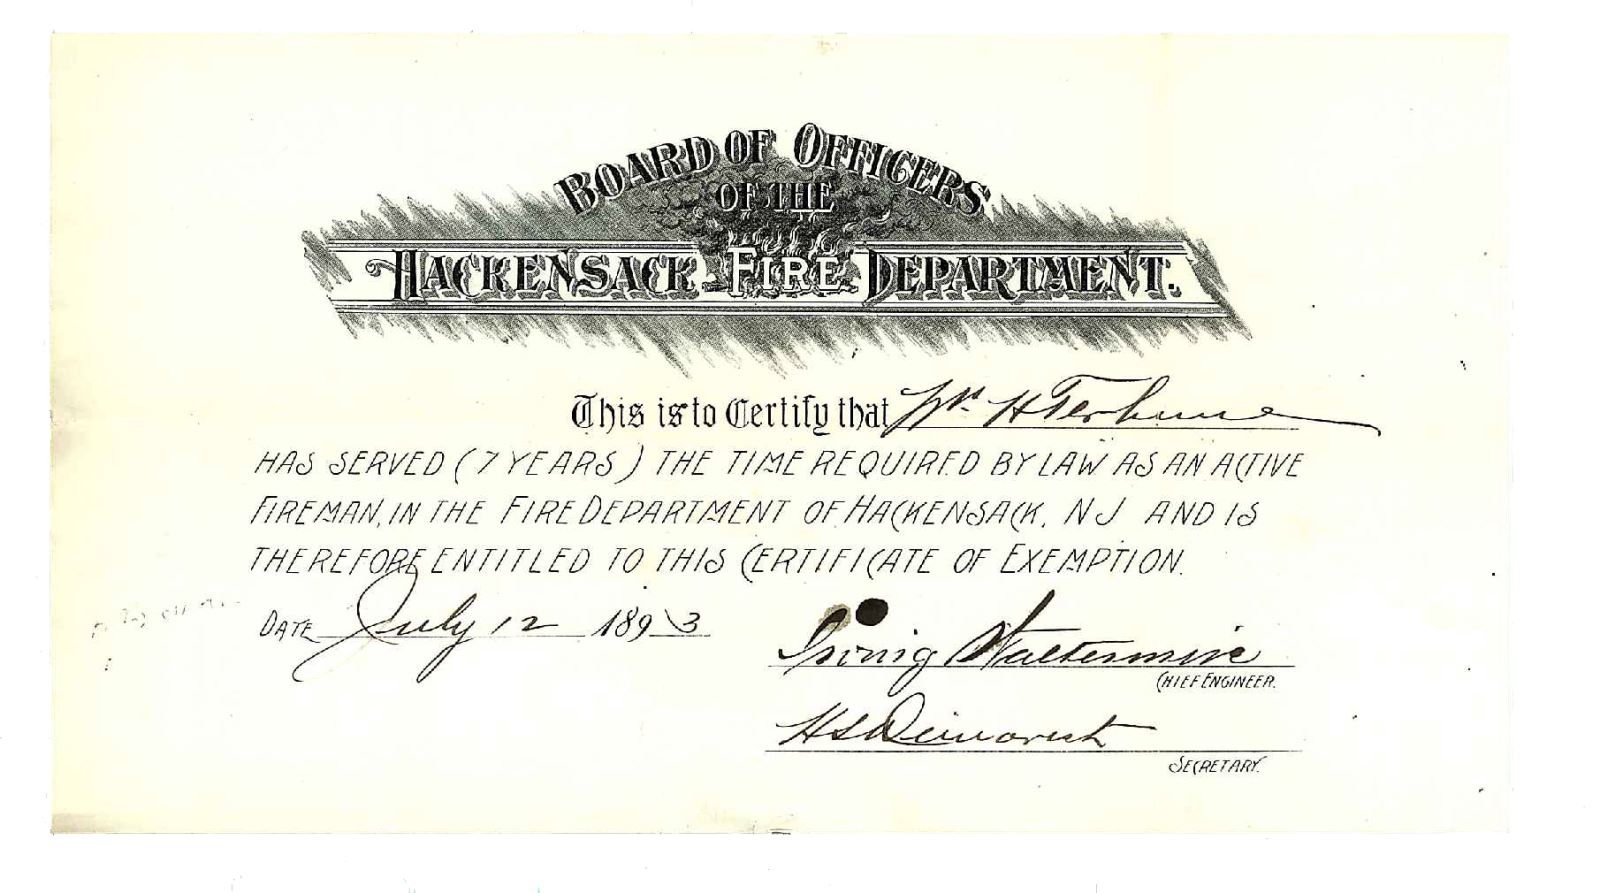 BOARD OF OFFICERS
OF THE
HACKENSACK FIRE DEPARTMENT.
This is to Certify that Wm H Terhune
HAS SERVED (7 YEARS) THE TIME REQUIRED BY LAW AS AN ACTIVE
FIREMAN, IN THE FIRE DEPARTMENT OF HACKENSACK, NJ AND IS
THEREFORE ENTITLED TO THIS CERTIFICATE OF EXEMPTION.
DATE July 12 1893
Irving Waltermire
CHIEF ENGINEER.
H S Demarest
SECRETARY.